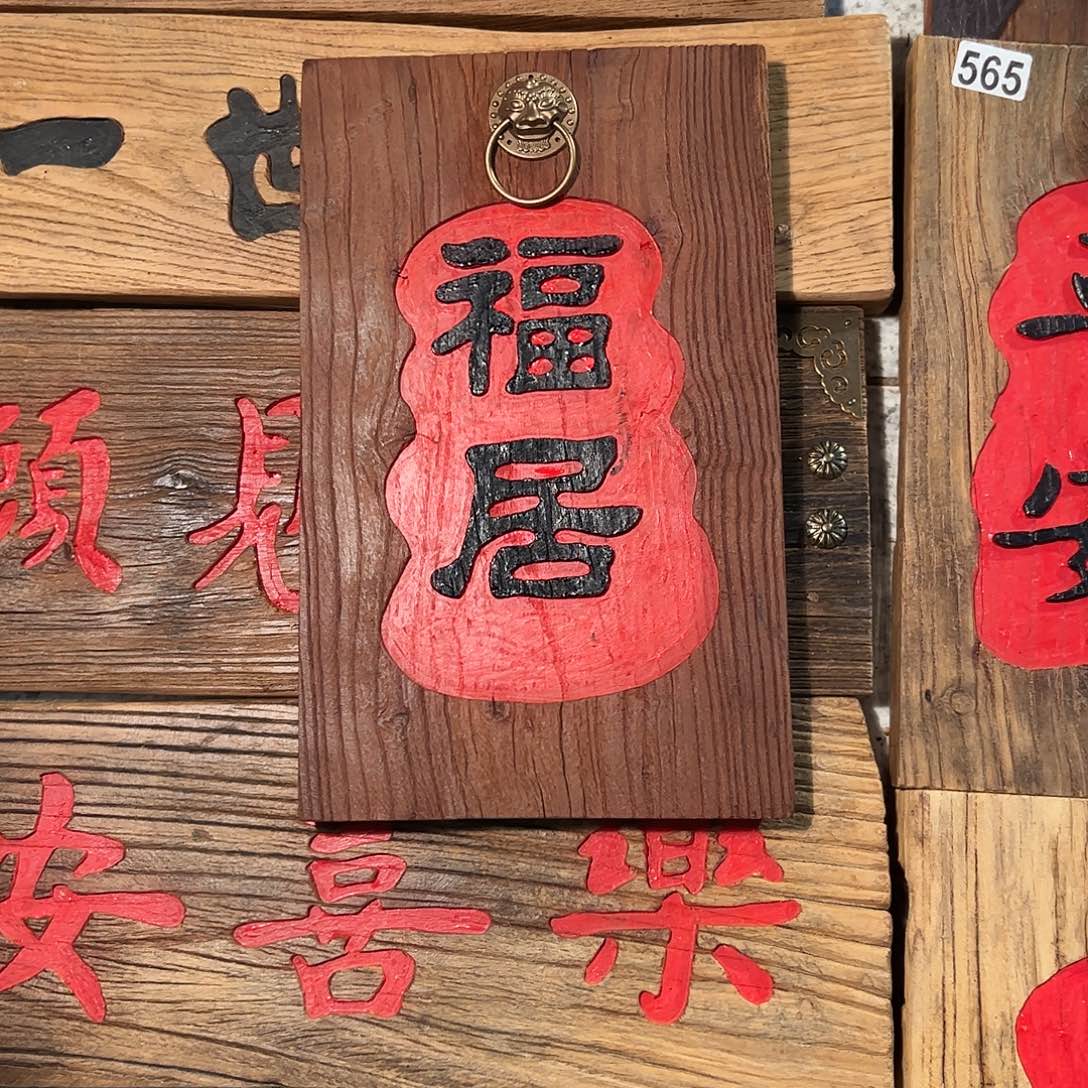 一世
565
福
居
願見
安喜樂